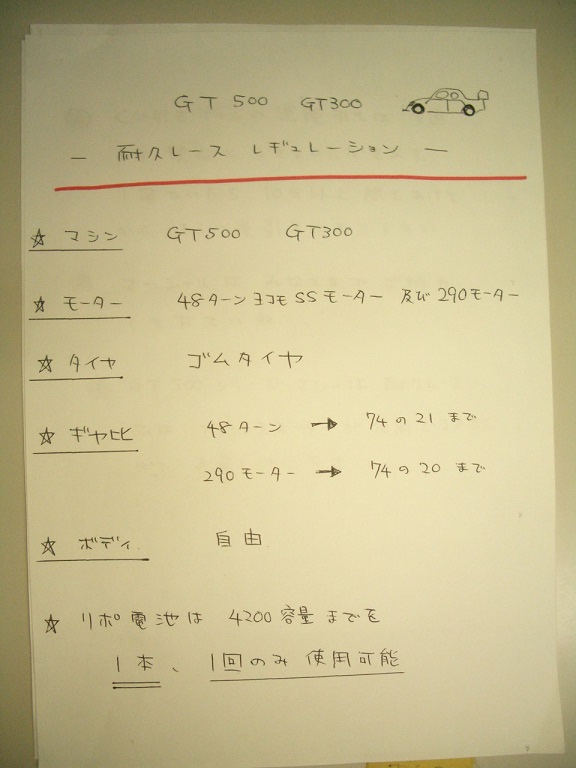 GT500 GT300
― 耐久レース レギュレーション ―
☆ マシン GT500 GT300
☆ モーター 48ターンヨコモSSモーター 及び290モーター
☆ タイヤ ゴムタイヤ
☆ ギヤ比 48ターン → 74の21まで
290モーター → 74の20まで
☆ ボディ 自由
☆ リポ電池は 4200容量までを
1本、1回のみ使用可能